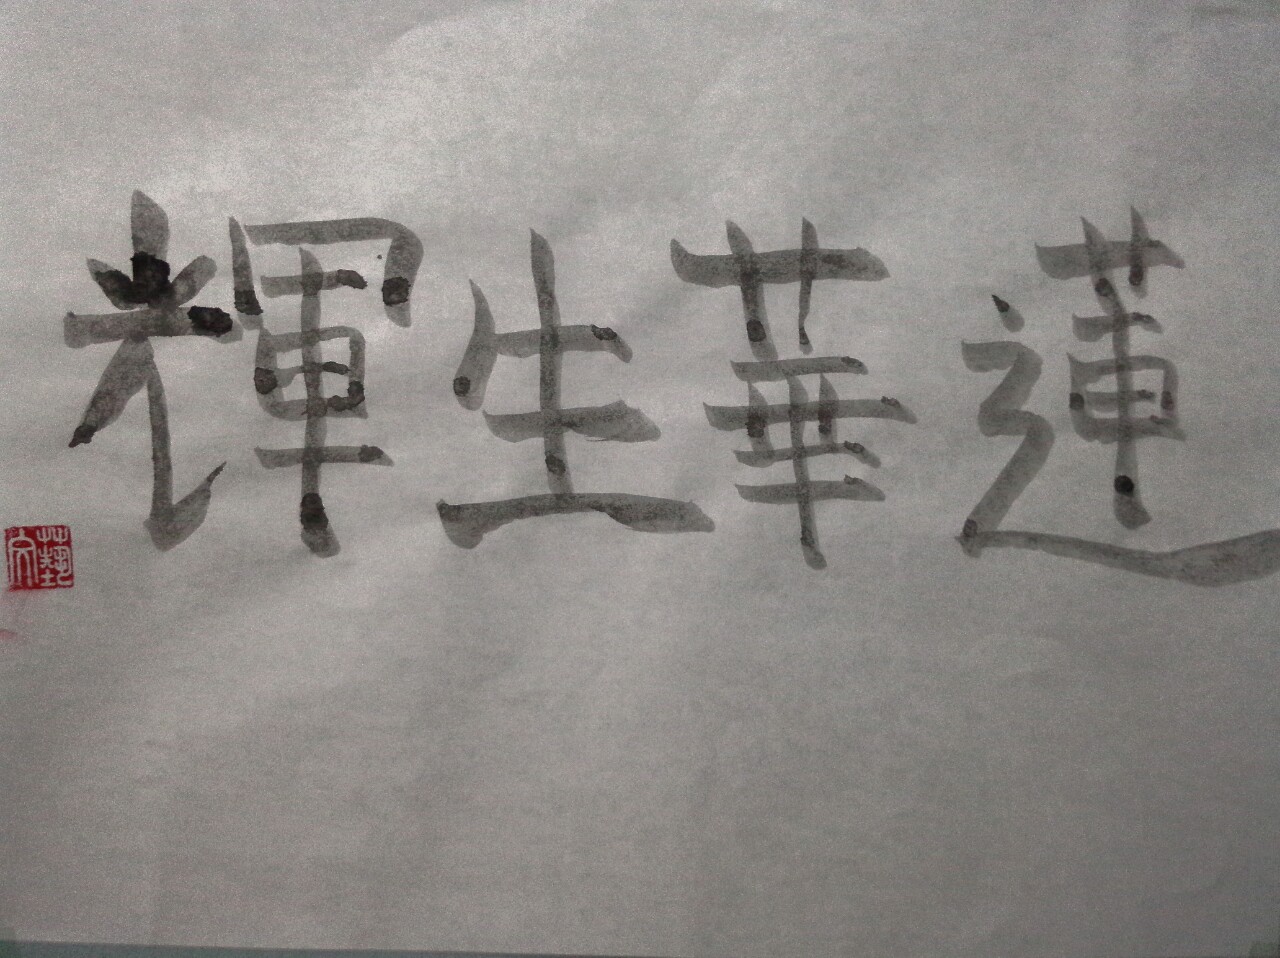 蓮華生輝